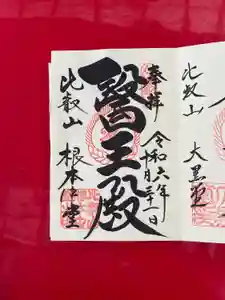 奉拝
令和六年
十月三十一日
醫王殿
比叡山
根本中堂
比叡山
大黒堂